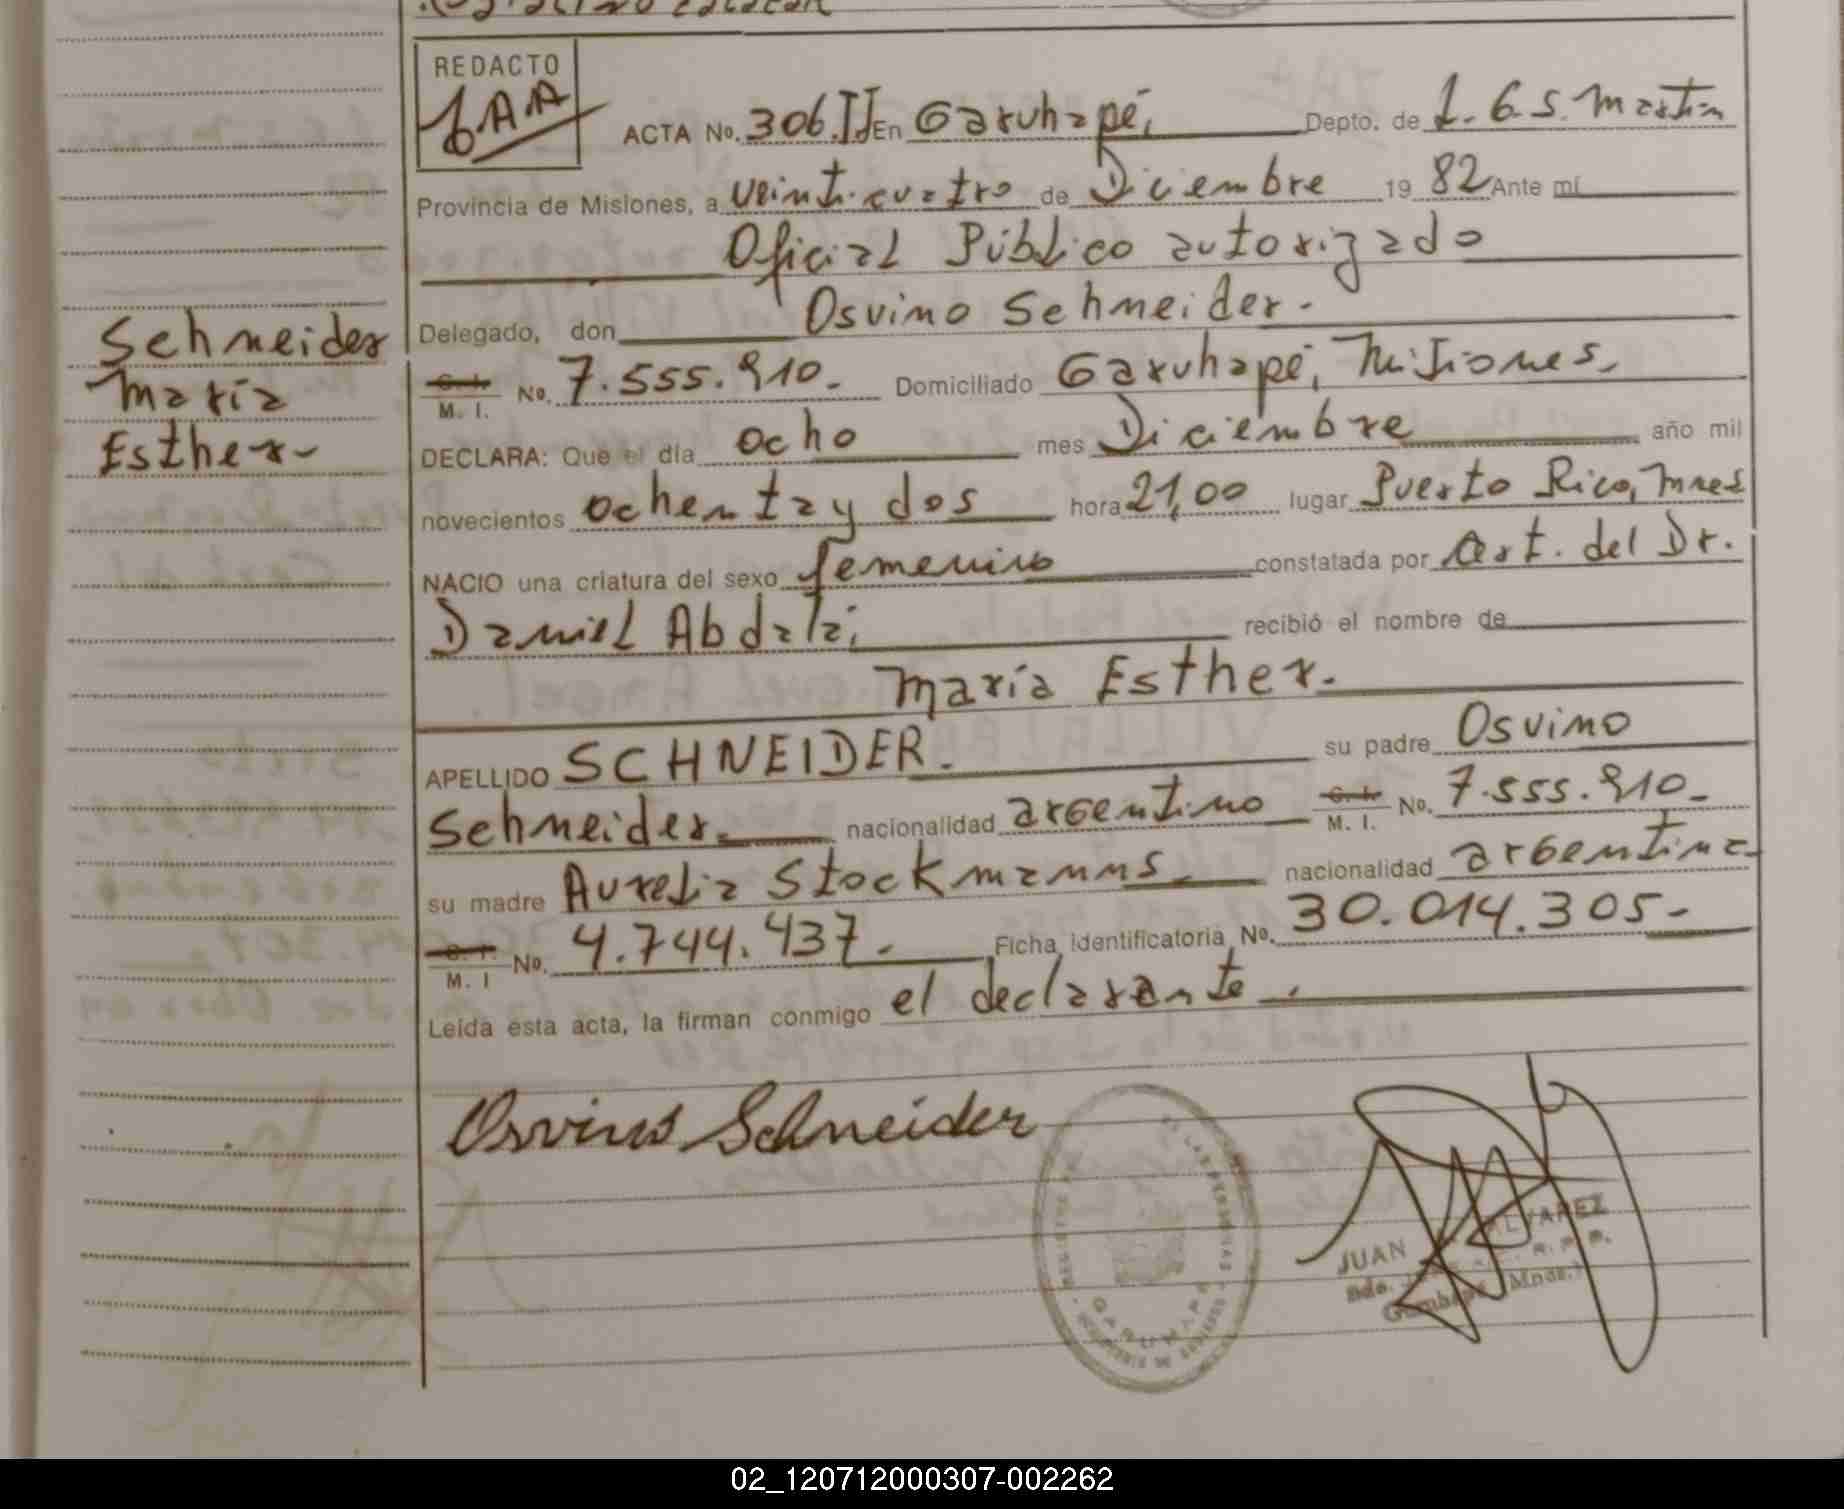 REDACTO
ACTA No. 306.II En Garuhapé, Depto. de L. G. S. Martin
Provincia de Misiones, a veinticuatro de Diciembre 19 82 Ante mí
Oficial Público autorizado
Delegado, don Osvino Schneider.
Schneider
C. I. M. I. No. 7.555.910. Domiciliado Garuhapé, Misiones.
María
DECLARA: Que el día ocho mes Diciembre año mil
Esther
novecientos ochenta y dos hora 21,00 lugar Puerto Rico, Mnes
NACIO una criatura del sexo femenino constatada por Cert. del Dr.
Daniel Abdala, recibió el nombre de
María Esther.
APELLIDO SCHNEIDER. su padre Osvino
Schneider. nacionalidad argentino C. I. M. I. No. 7.555.910.
su madre Aurelia Stockmanns. nacionalidad argentina
C. I. M. I No. 4.744.437. Ficha identificatoria No. 30.014.305-
Leída esta acta, la firman conmigo el declarante.
Osvino Schneider
GARUHAPE
JUAN ALVAREZ
02_120712000307-002262